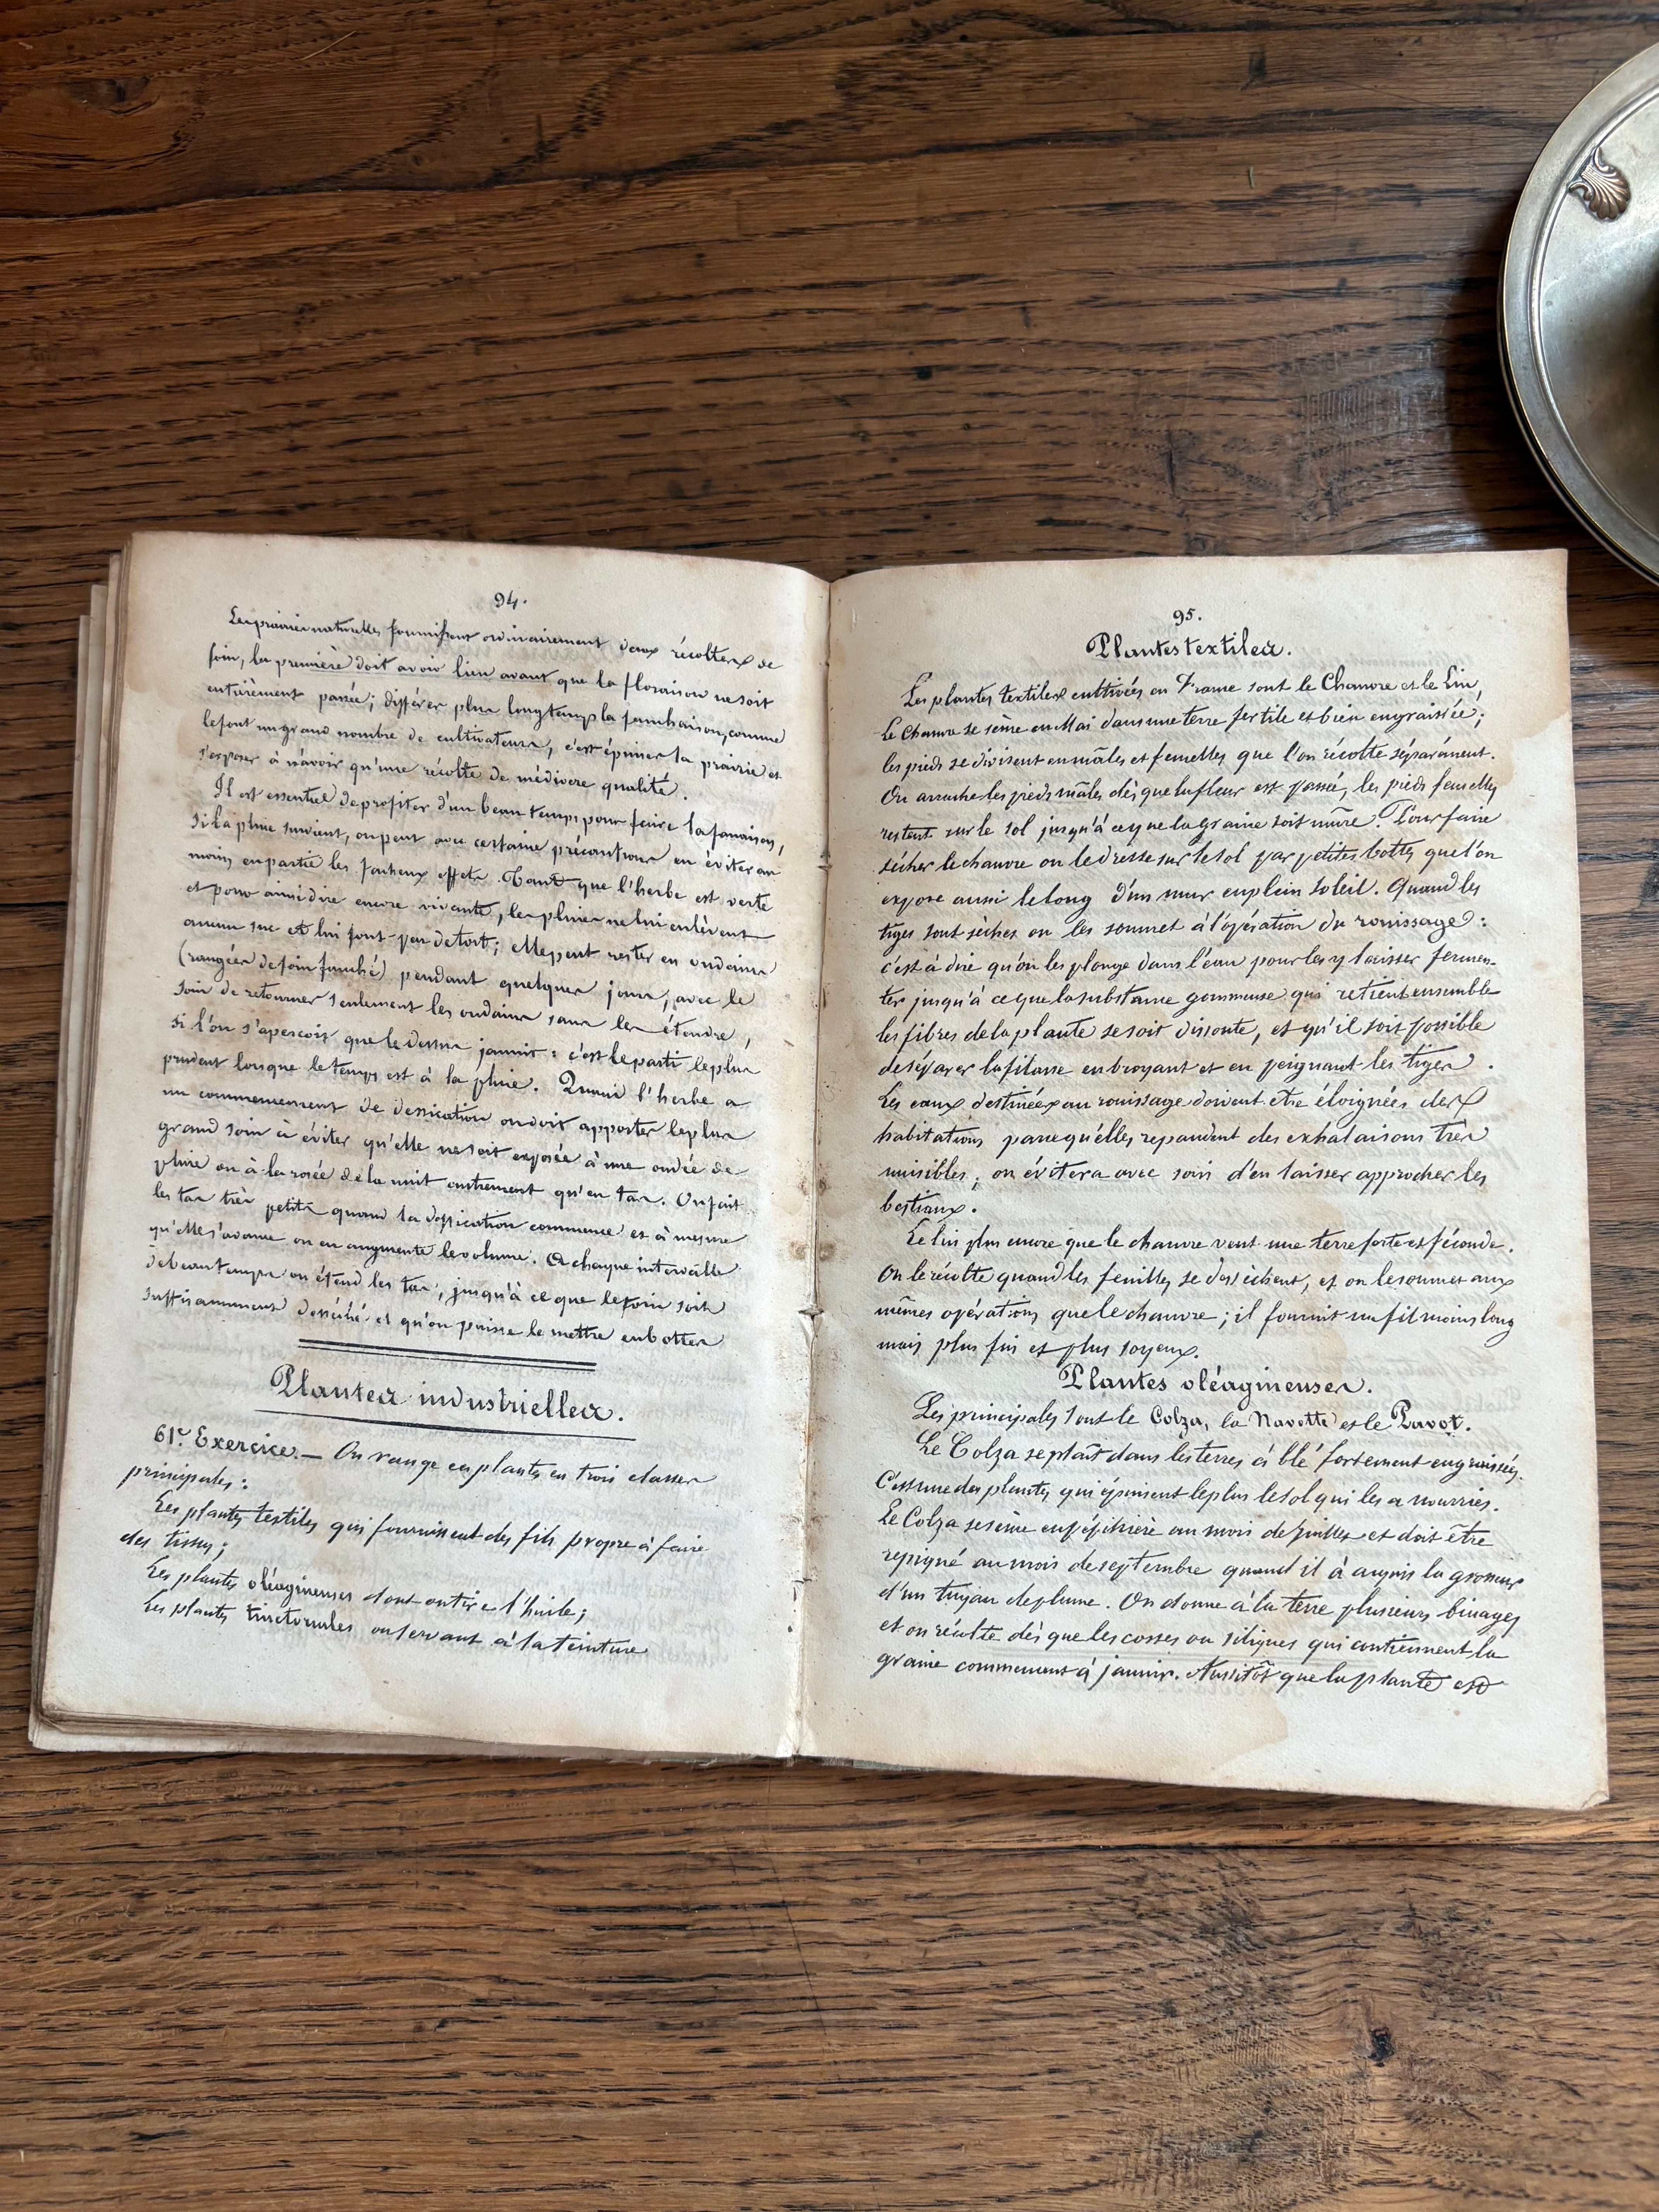 94.
Les prairies naturelles fournissent ordinairement deux récoltes de
foin, la première doit avoir lieu avant que la floraison ne soit
entièrement passée; différer plus longtemps la fauchaison, comme
le font un grand nombre de cultivateurs, c'est épuiser la prairie et
s'exposer à n'avoir qu'une récolte de médiocre qualité.
Il est essentiel de profiter d'un beau temps pour faire la fanaison,
si la pluie survient, on peut avec certaine précautions en éviter au
moins en partie les facheux effets. Tant que l'herbe est verte
et pour ainsi dire encore vivante, les pluies ne lui enlèvent
aucun suc et lui font peu de tort; elle peut rester en ondains
(rangées de foin fauché) pendant quelques jours, avec le
soin de retourner seulement les ondains sans les étendre,
si l'on s'apercois que le dessus jaunit: c'est le parti le plus
prudent lorsque le temps est à la pluie. Quand l'herbe a
un commencement de dessication on doit apporter le plus
grand soin à éviter qu'elle ne soit exposée à une ondée de
pluie ou à la rosée de la nuit autrement qu'en tas. On fait
les tas très petits quand la dessication commence et à mesure
qu'elle s'avance on en augmente le volume. A chaque intervalle
de beau temps on étend les tas, jusqu'à ce que le foin soit
suffisamment desséché et qu'on puisse le mettre en bottes
Plantes industrielles.
61e. Exercice. — On range ces plantes en trois classes
principales:
Les plantes textiles qui fournissent des fils propre à faire
des tissus;
Les plantes oléagineuses dont on tire l'huile;
Les plantes tinctoriales ou servant à la teinture
95.
Plantes textiles.
Les plantes textiles cultivées en France sont le Chanvre et le Lin,
Le Chanvre se sème en Mai dans une terre fertile et bien engraissée;
les pieds se divisent en mâles et femelles que l'on récolte séparément.
On arrache les pieds mâles dès que la fleur est passée, les pieds femelles
restent sur le sol jusqu'à ce que la graine soit mûre. Pour faire
sécher le chanvre on le dresse sur le sol par petites bottes que l'on
expose aussi le long d'un mur en plein soleil. Quand les
tiges sont sèches on les soumet à l'opération du rouissage:
c'est à dire qu'on les plonge dans l'eau pour les y laisser fermen-
ter jusqu'à ce que la substance gommeuse qui retient ensemble
les fibres de la plante se soit dissoute, et qu'il soit possible
de séparer la filasse en broyant et en peignant les tiges.
Les eaux destinées au rouissage doivent être éloignées des
habitations parce qu'elles repandent des exhalaisons très
nuisibles; on évitera avec soin d'en laisser approcher les
bestiaux.
Le lin plus encore que le chanvre veut une terre forte et féconde.
On le récolte quand les feuilles se dessèchent, et on le soumet aux
mêmes opérations que le chanvre; il fournit un fil moins long
mais plus fin et plus soyeux.
Plantes oléagineuses.
Les principales sont le Colza, la Navette et le Pavot.
Le Colza se plaît dans les terres à blé fortement engraissées.
C'est une des plantes qui épuisent le plus le sol qui les a nourries.
Le Colza se sème en pépinière au mois de juillet et doit être
repiqué au mois de septembre quand il à acquis la grosseur
d'un tuyau de plume. On donne à la terre plusieurs binages
et on récolte dès que les cosses ou siliques qui contiennent la
graine commencent à jaunir. Aussitôt que la plante est